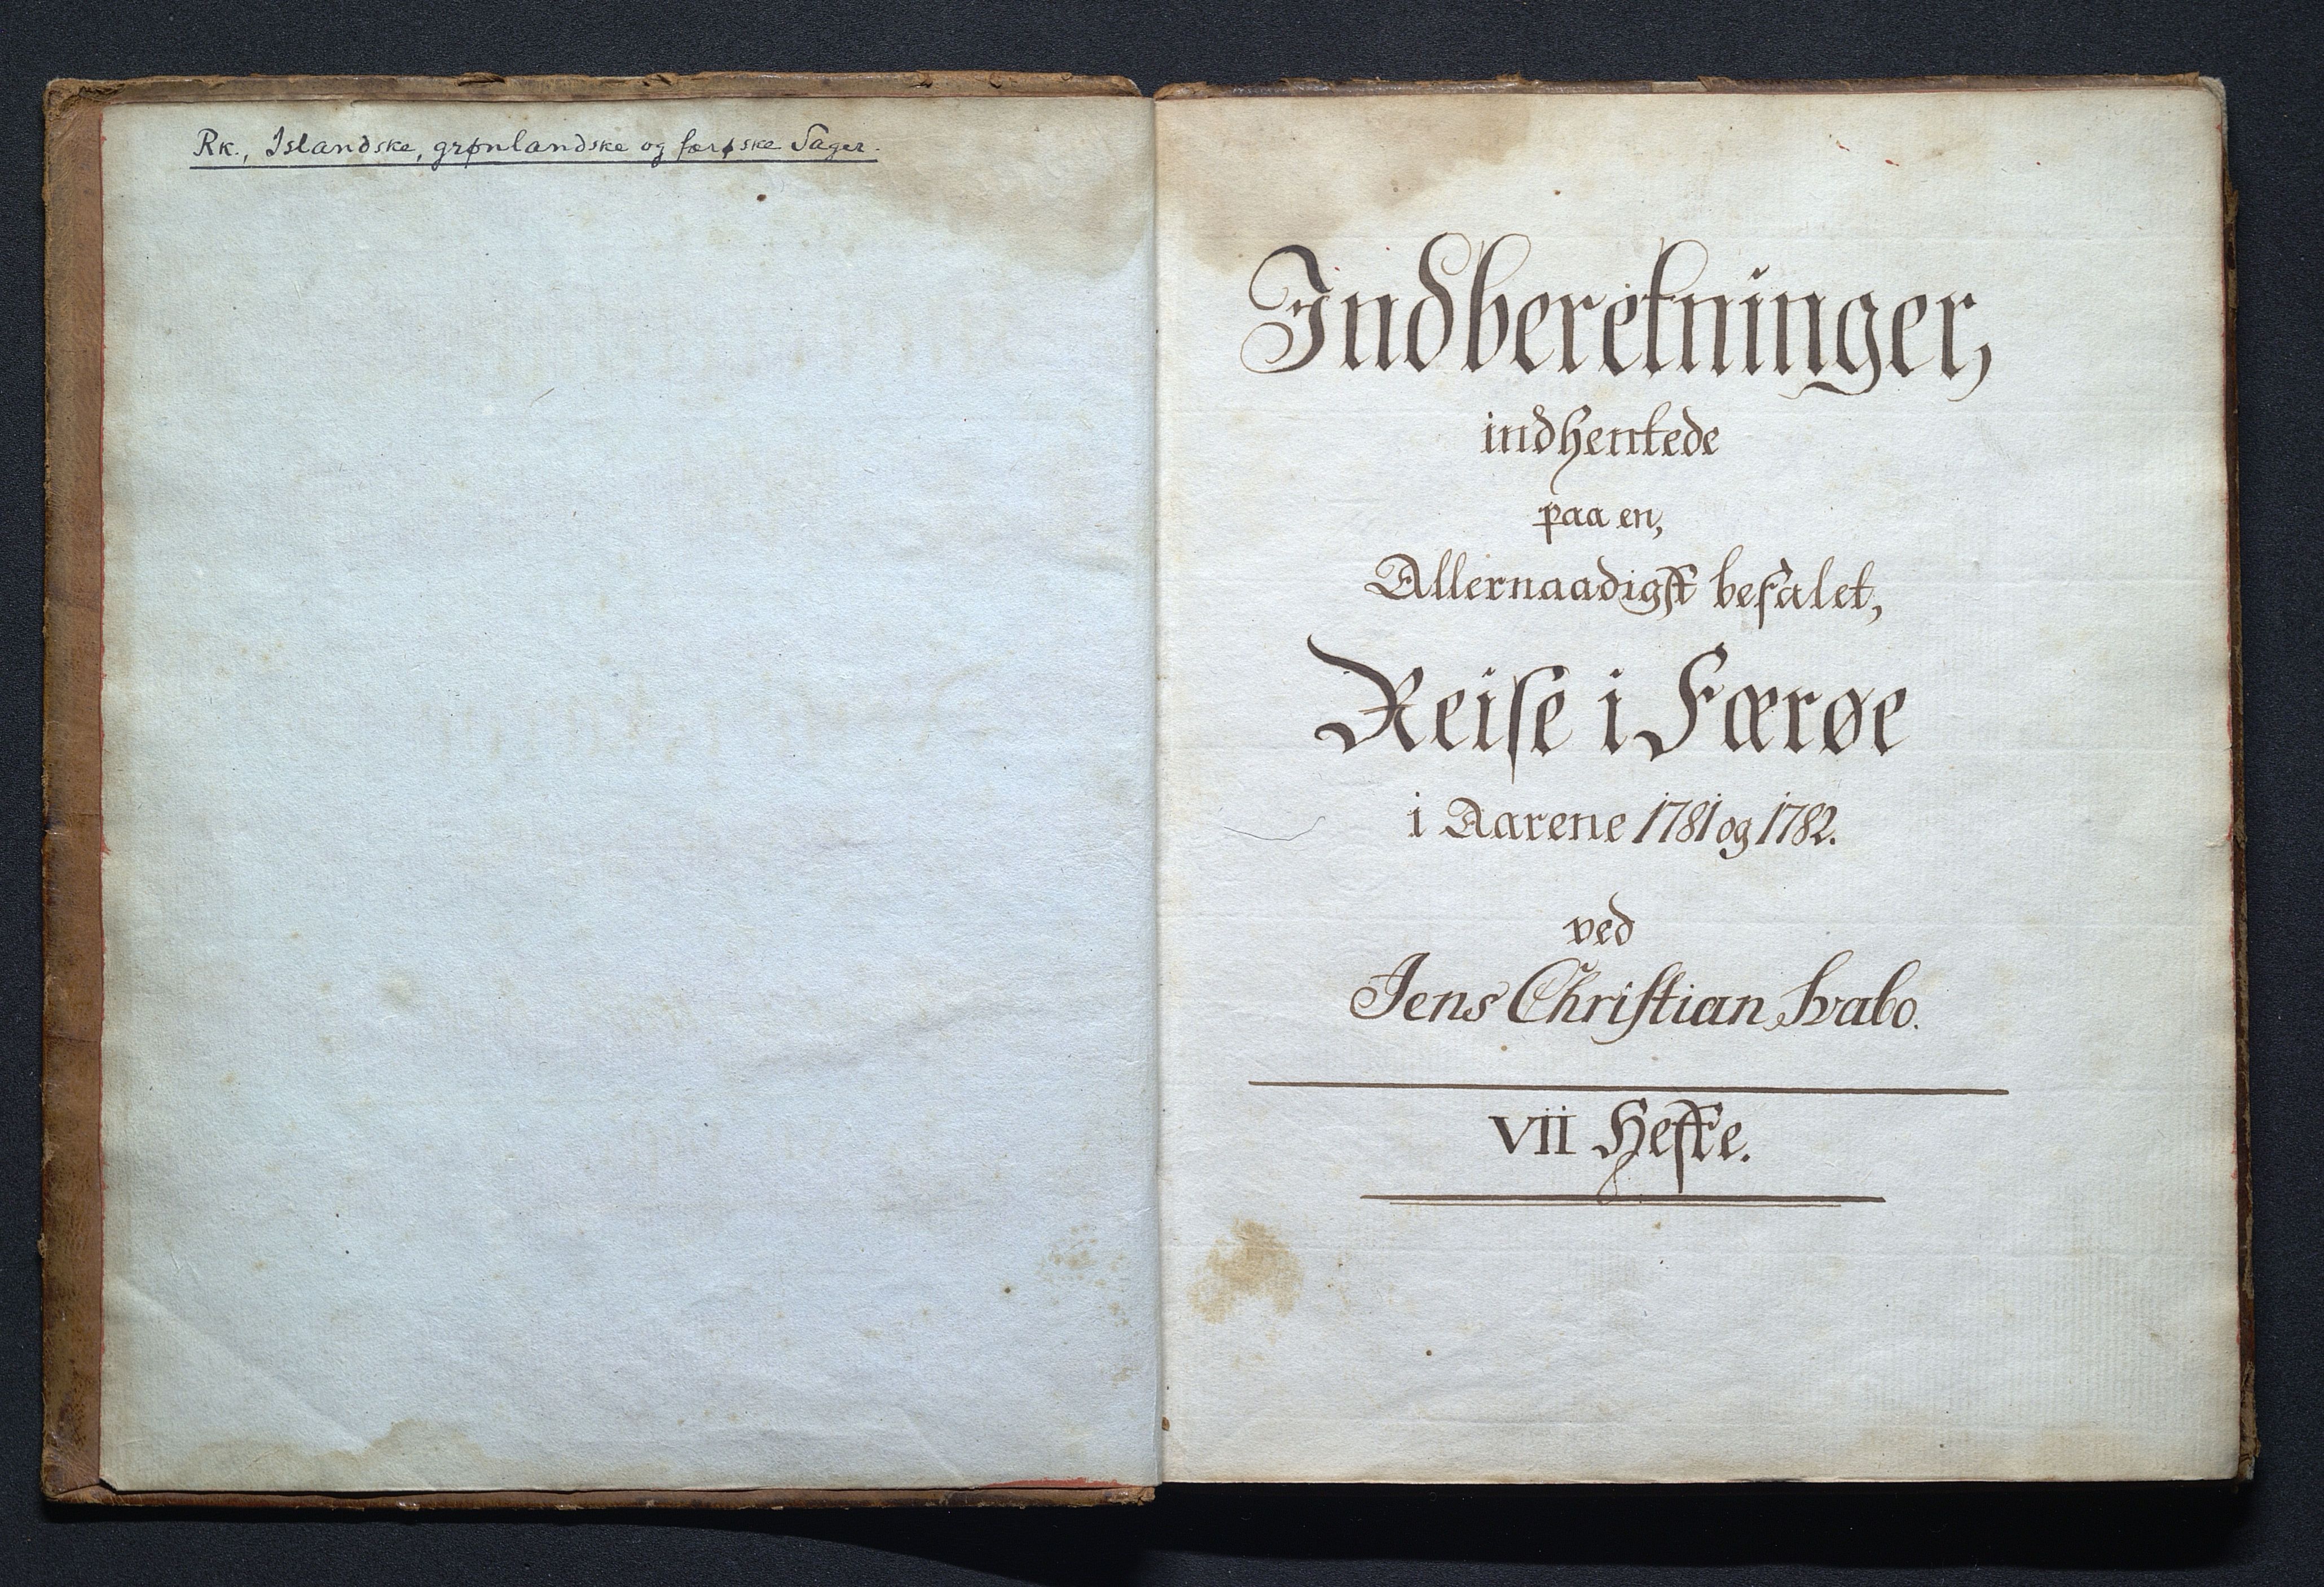 Rk., Islandske, grønlandske og færøske Sager.
Indberetninger,
indhentede
paa en,
Allernaadigst befalet,
Reise i Færøe
i Aarene 1781 og 1782.
ved
Jens Christian Svabo.
VII Hefte.